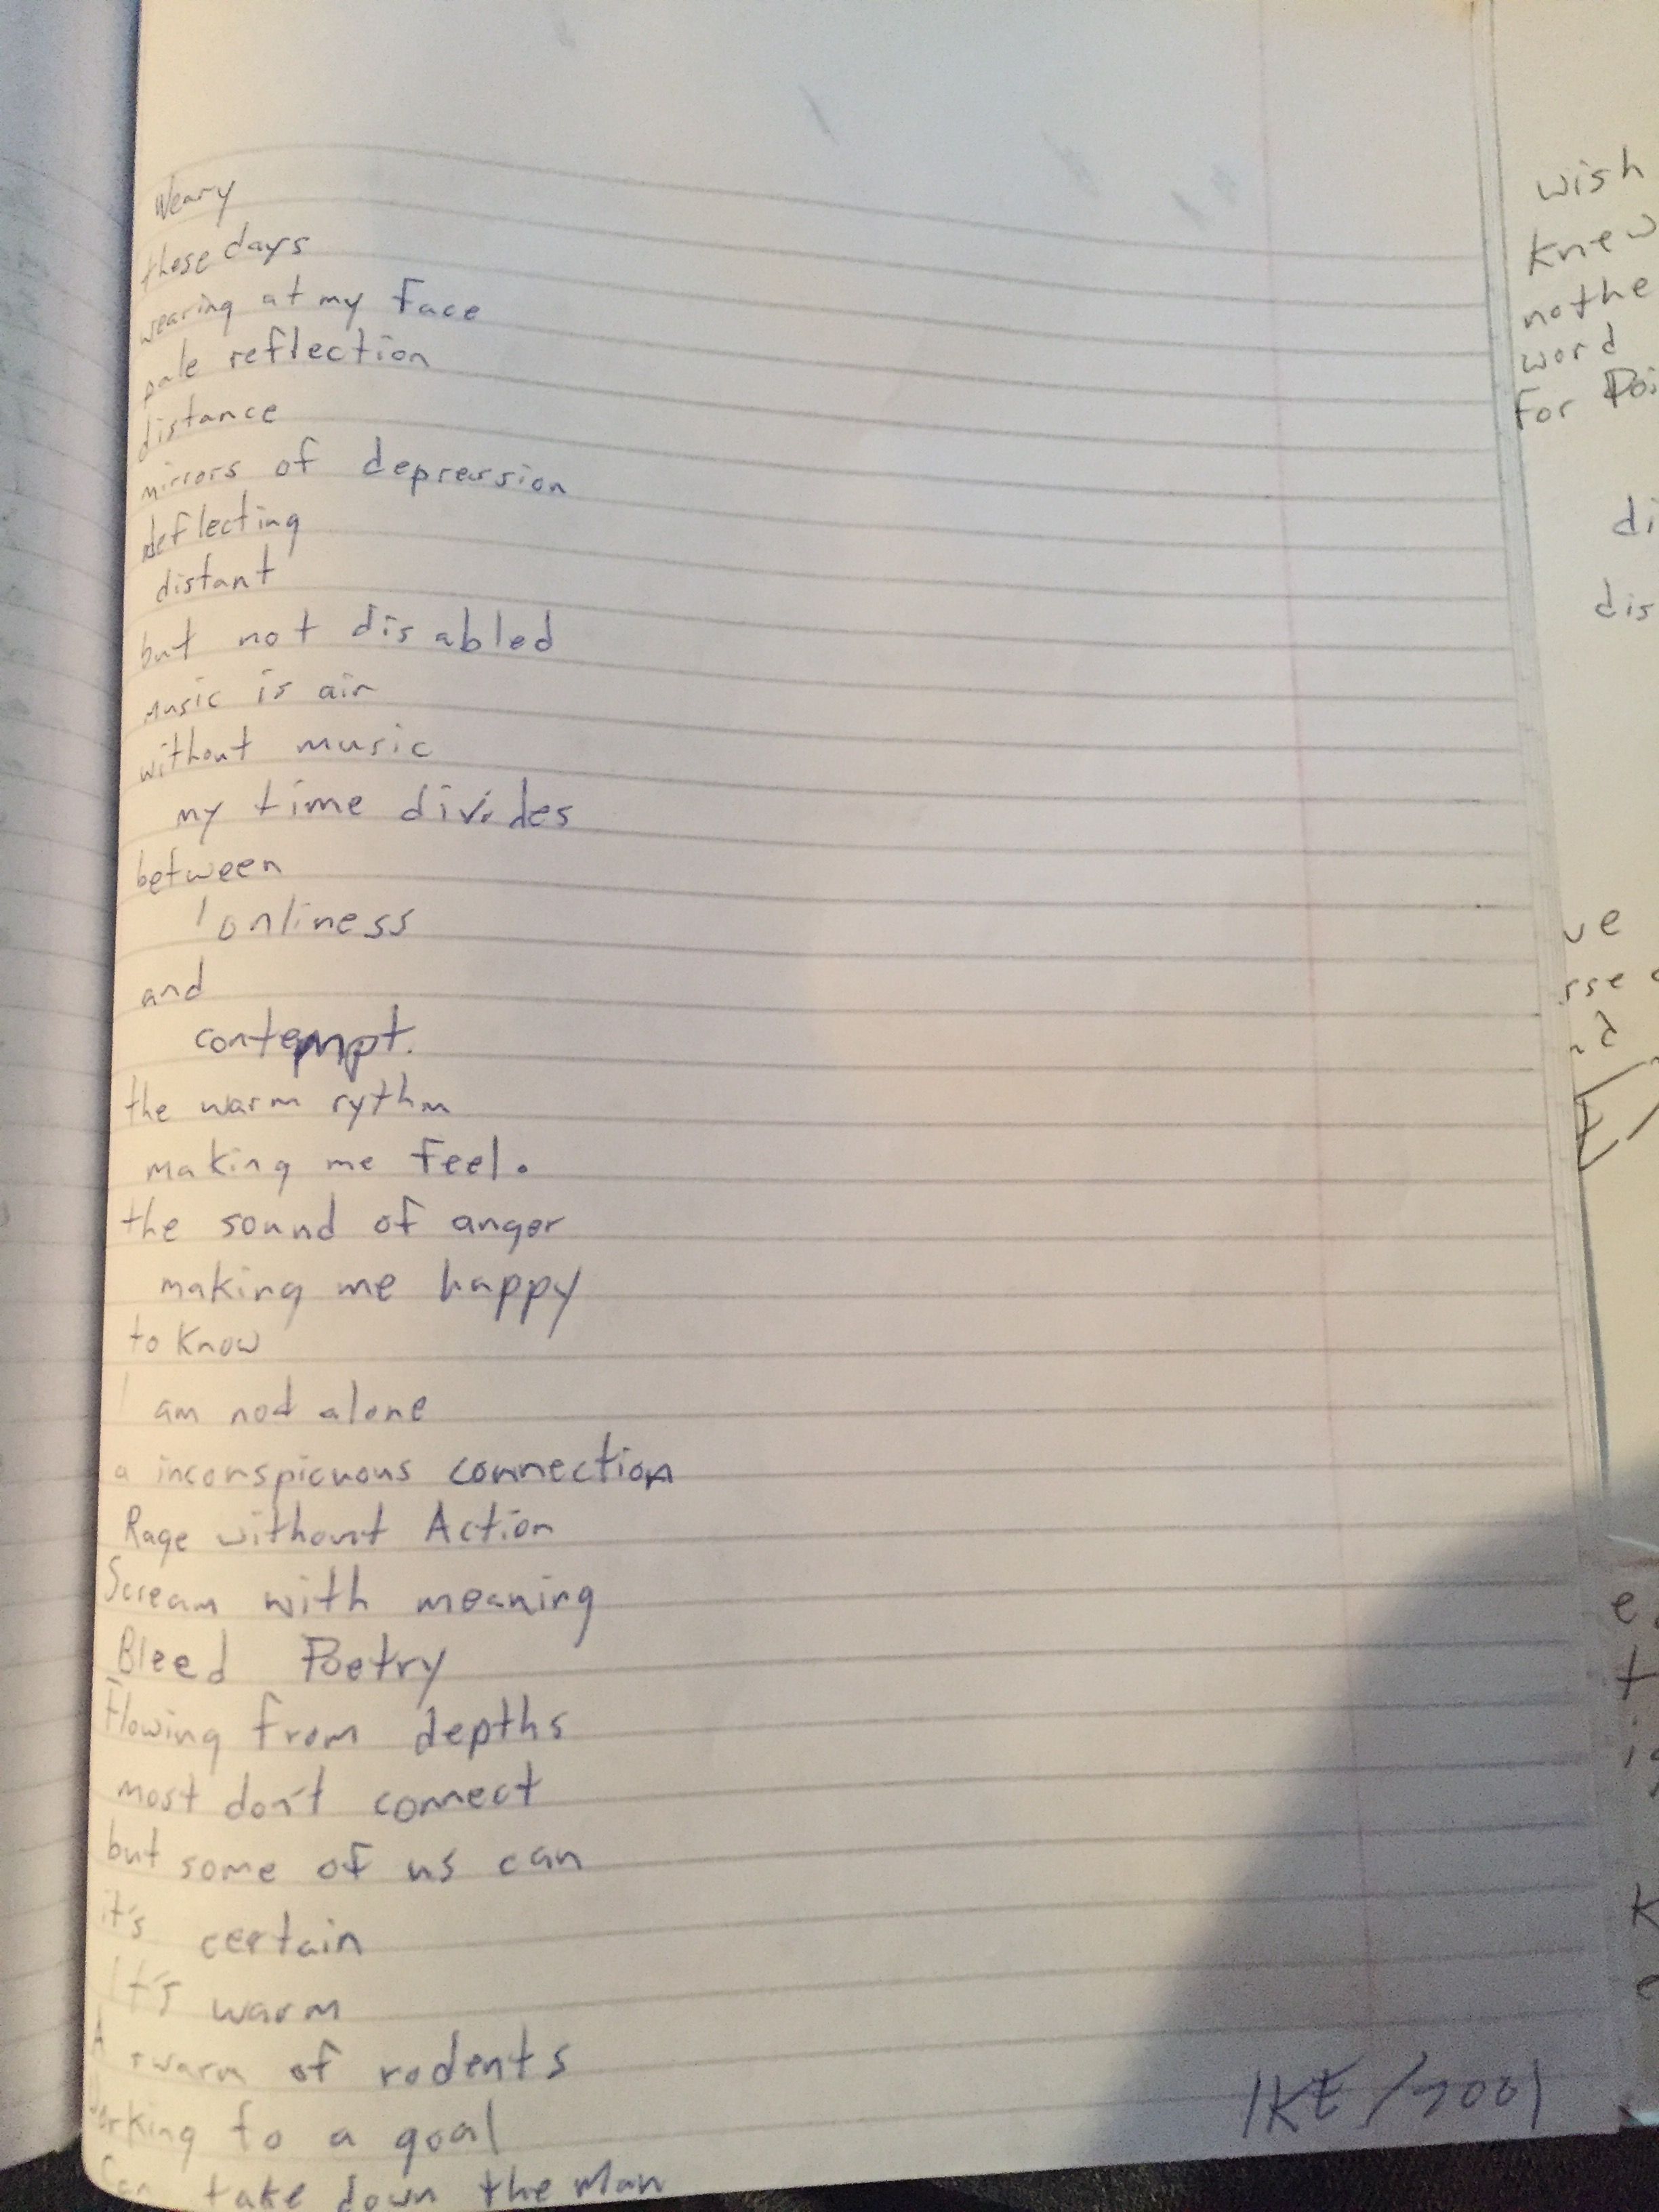 Weary
these days
wearing at my face
pale reflection
distance
mirrors of depression
deflecting
distant
but not disabled
music is air
without music
my time divides
between
lonliness
and
contempt.
the warm rythm
making me feel.
the sound of anger
making me happy
to know
I am not alone
a inconspicuous connection
Rage without Action
Scream with meaning
Bleed Poetry
Flowing from depths
most don't connect
but some of us can
it's certain
It's warm
A swarm of rodents
Working to a goal
Can take down the Man
IKE/2001
wish
knew
nothe
word
for Poi
di
dis
ve
rse